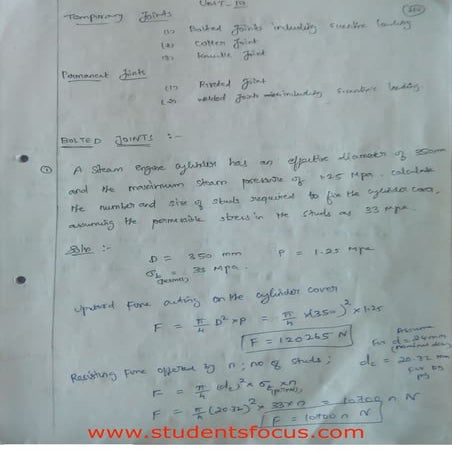 UNIT - IV
Temporary Joints
(1) Bolted Joints including eccentric loading
(2) Cotter Joint
(3) Knuckle Joint
Permanent Joints
(1) Riveted Joint
(2) Welded Joints including eccentric loading.
BOLTED JOINTS :-
① A Steam engine cylinder has an effective diameter of 350mm
and the maximum steam pressure of 1.25 Mpa. calculate
the number and size of studs required to fix the cylinder cover,
assuming the permissible stress in the studs as 33 Mpa.
Soln :-
D = 350 mm P = 1.25 Mpa
σt = 33 Mpa.
(perm)
Upward Force acting on the cylinder cover
F = π/4 D² × P = π/4 × (350)² × 1.25
F = 120265 N
Assume
for d = 24mm
Resisting Force offered by n, no of studs;
dc = 20.32 mm
F = π/4 (dc)² × σt × n
F = π/4 (20.32)² × 33 × n = 10700 n N
F = 10700 n N
www.studentsfocus.com